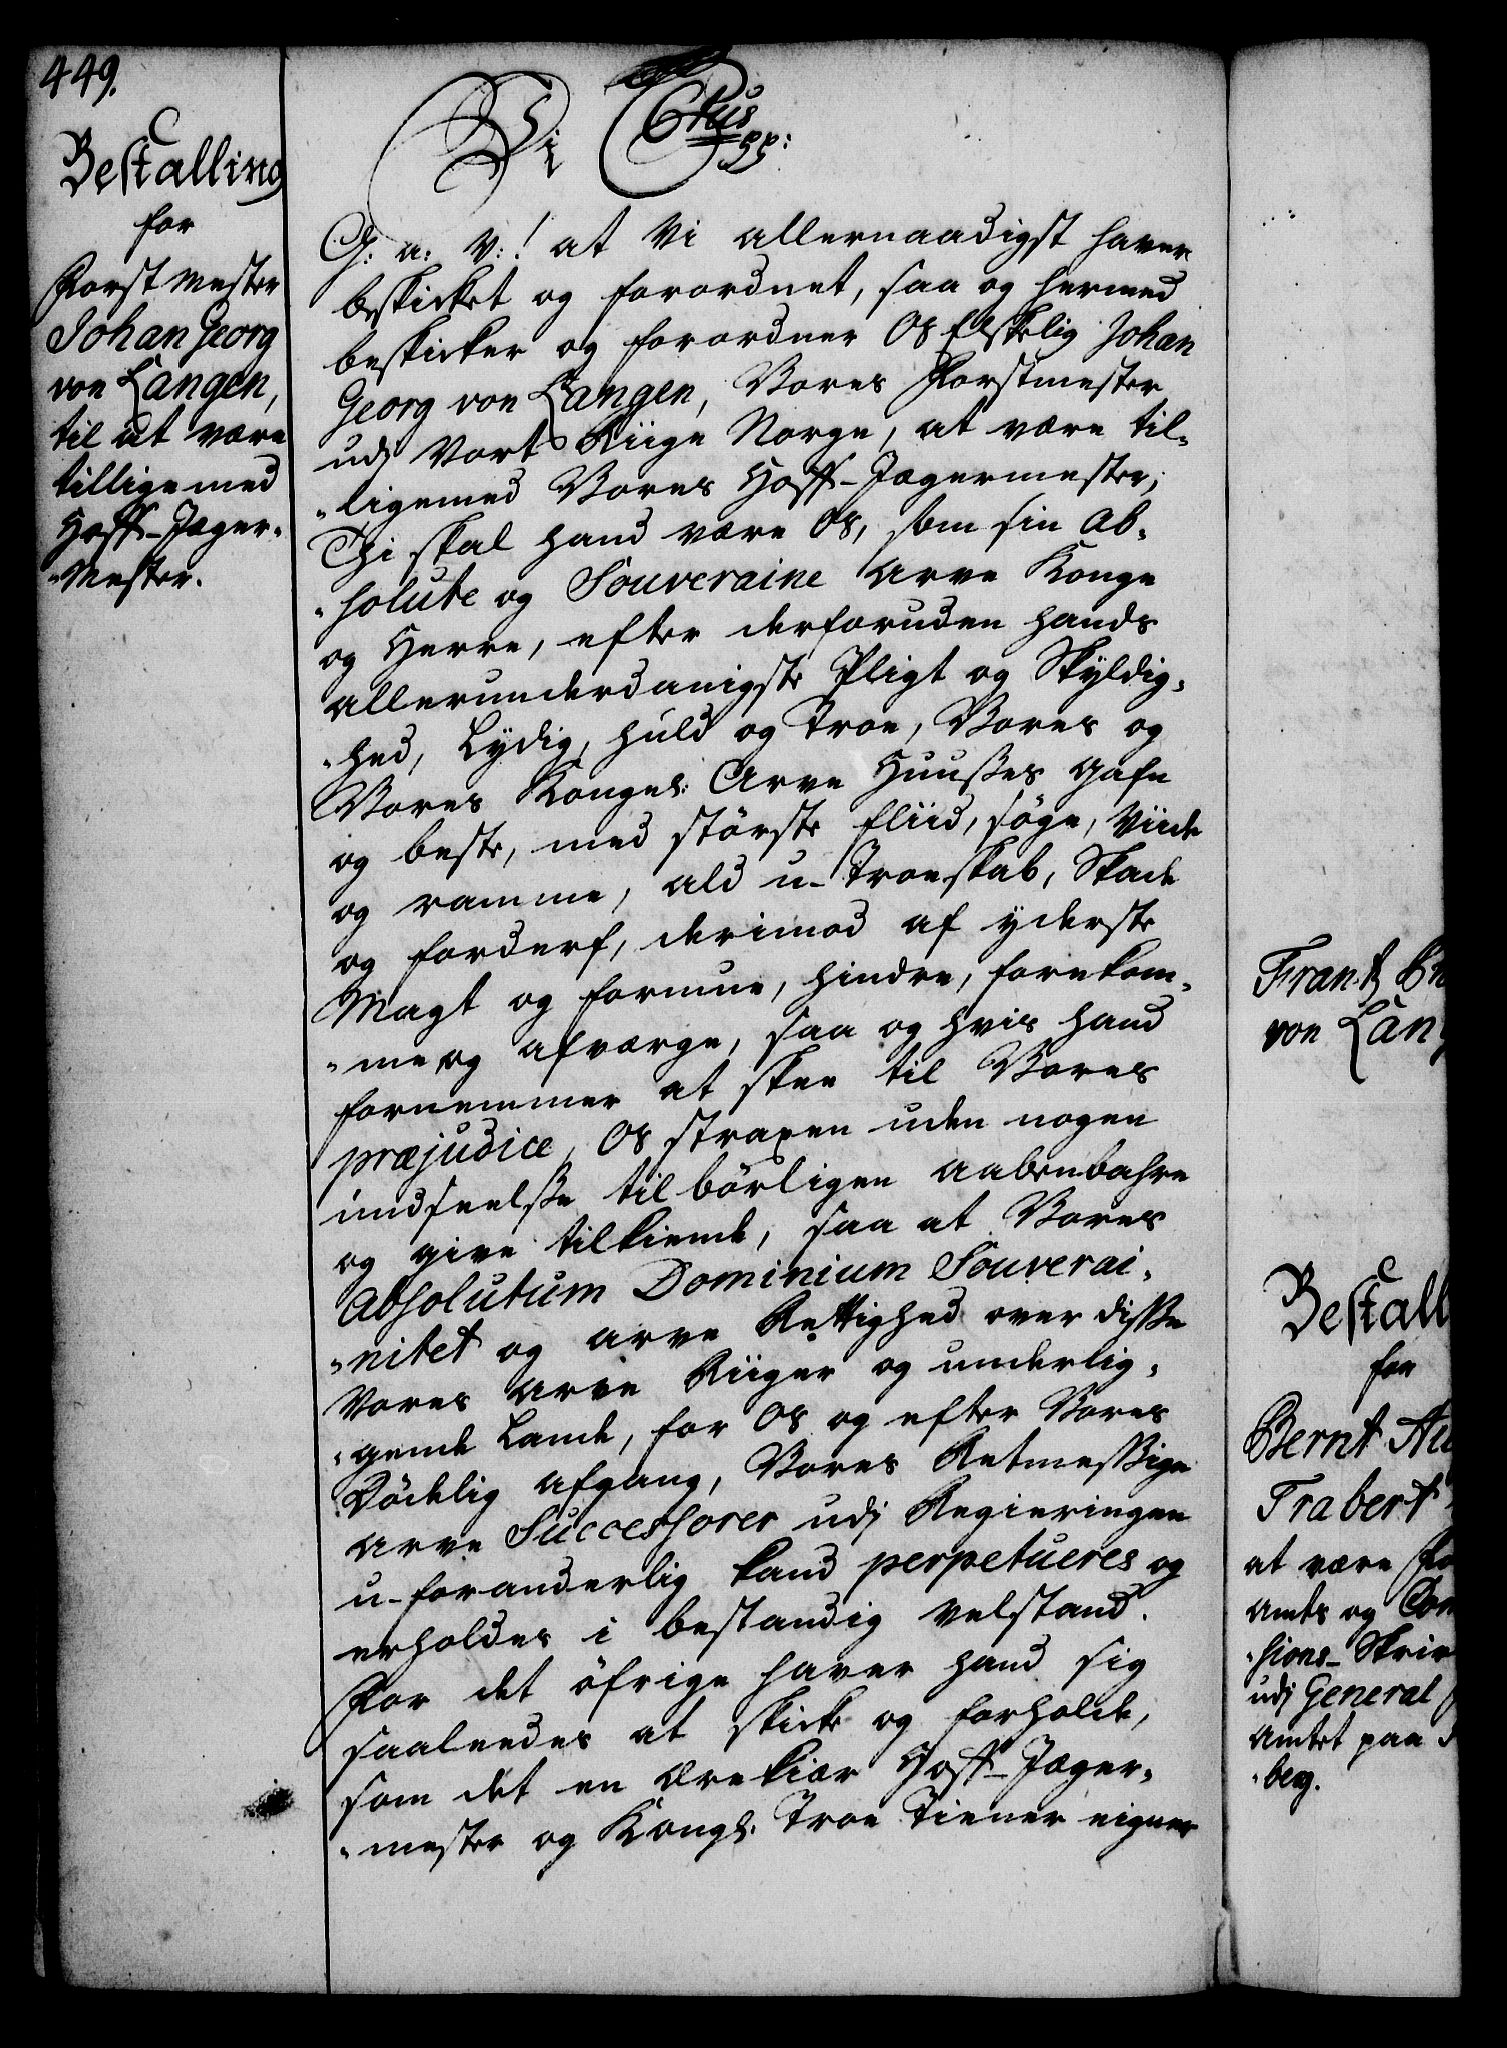 449.
Bestalling
for
Forst Mester
Johan Georg
von Langen,
til at være
tillige med
Hoff-Jæger-
-Mester.
Vi Ctus
pp:
G: a: V:! at Vi allernaadigst haver
beskicket og forordnet, saa og hermed
beskicker og forordner Os Elskelig Johan
Georg von Langen, Vores Forstmester
udj Vort Riige Norge, at være til-
-ligemed Vores Hoff-Jægermester;
Thi skal hand være Os, som sin Ab-
-solute og Souveraine Arve Konge
og Herre, efter derforuden hands
allerunderdanigste Pligt og Skyldig-
-hed, Lydig, huld og Troe, Vores og
Vores Kongel: Arve Huusses gafn
og beste, med störste fliid, söge, Viide
og ramme, ald u-Troeskab, Skade
og forderf, derimod af yderste
Magt og formue, hindre, forekom-
-me og afværge, saa og hvis hand
fornemmer at skee til Vores
præjudice, Os straxen uden nogen
undseelsse tilbörligen aabenbahre
og give tilkiende, saa at Vores
Absolutum Dominium Souverai-
-nitet og Arve Rettighed over disse
Vores Arve Riiger og underlig-
-gende Lande, for Os og efter Vores
Dödelig afgang, Vores Retmessige
Arve Successorer udj Regieringen
u-foranderlig kand perpetueres og
erholdes i bestandig velstand.
For det öfrige haver hand sig
saaleedes at skicke og forholde,
som det en Ærekiær Hoff-Jæger-
-mester og Kongl: Troe Tiener eigner
Frantz
von Lan
Bestall
for
Bernt
Trabert
at være
Amts og
-sions-Skriv
udj General
Amtet paa
-berg.